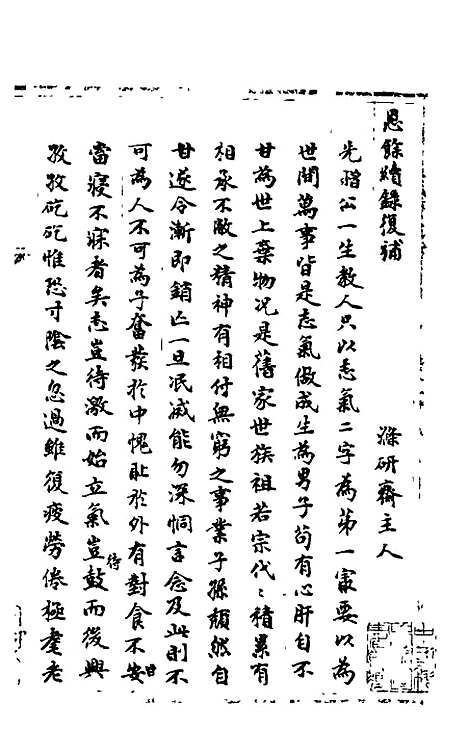 恩餘續錄復補
滌研齋主人
先稽公一生教人只以志氣二字為第一最要以為
世間萬事皆是志氣做成生為男子苟有心肝自不
甘為世上棄物况是舊家世族祖若宗代〻積累有
相承不敝之精神有相付無窮之事業子孫頹然自
甘遂令漸即銷亡一旦泯滅能勿深恫言念及此則不
可為人不可為子奮發於中愧耻於外有對食不甘
當寢不寐者矣志豈待激而始立氣豈待鼓而後興
孜孜矻矻惟恐寸陰之忽過雖復疲勞倦極耄老